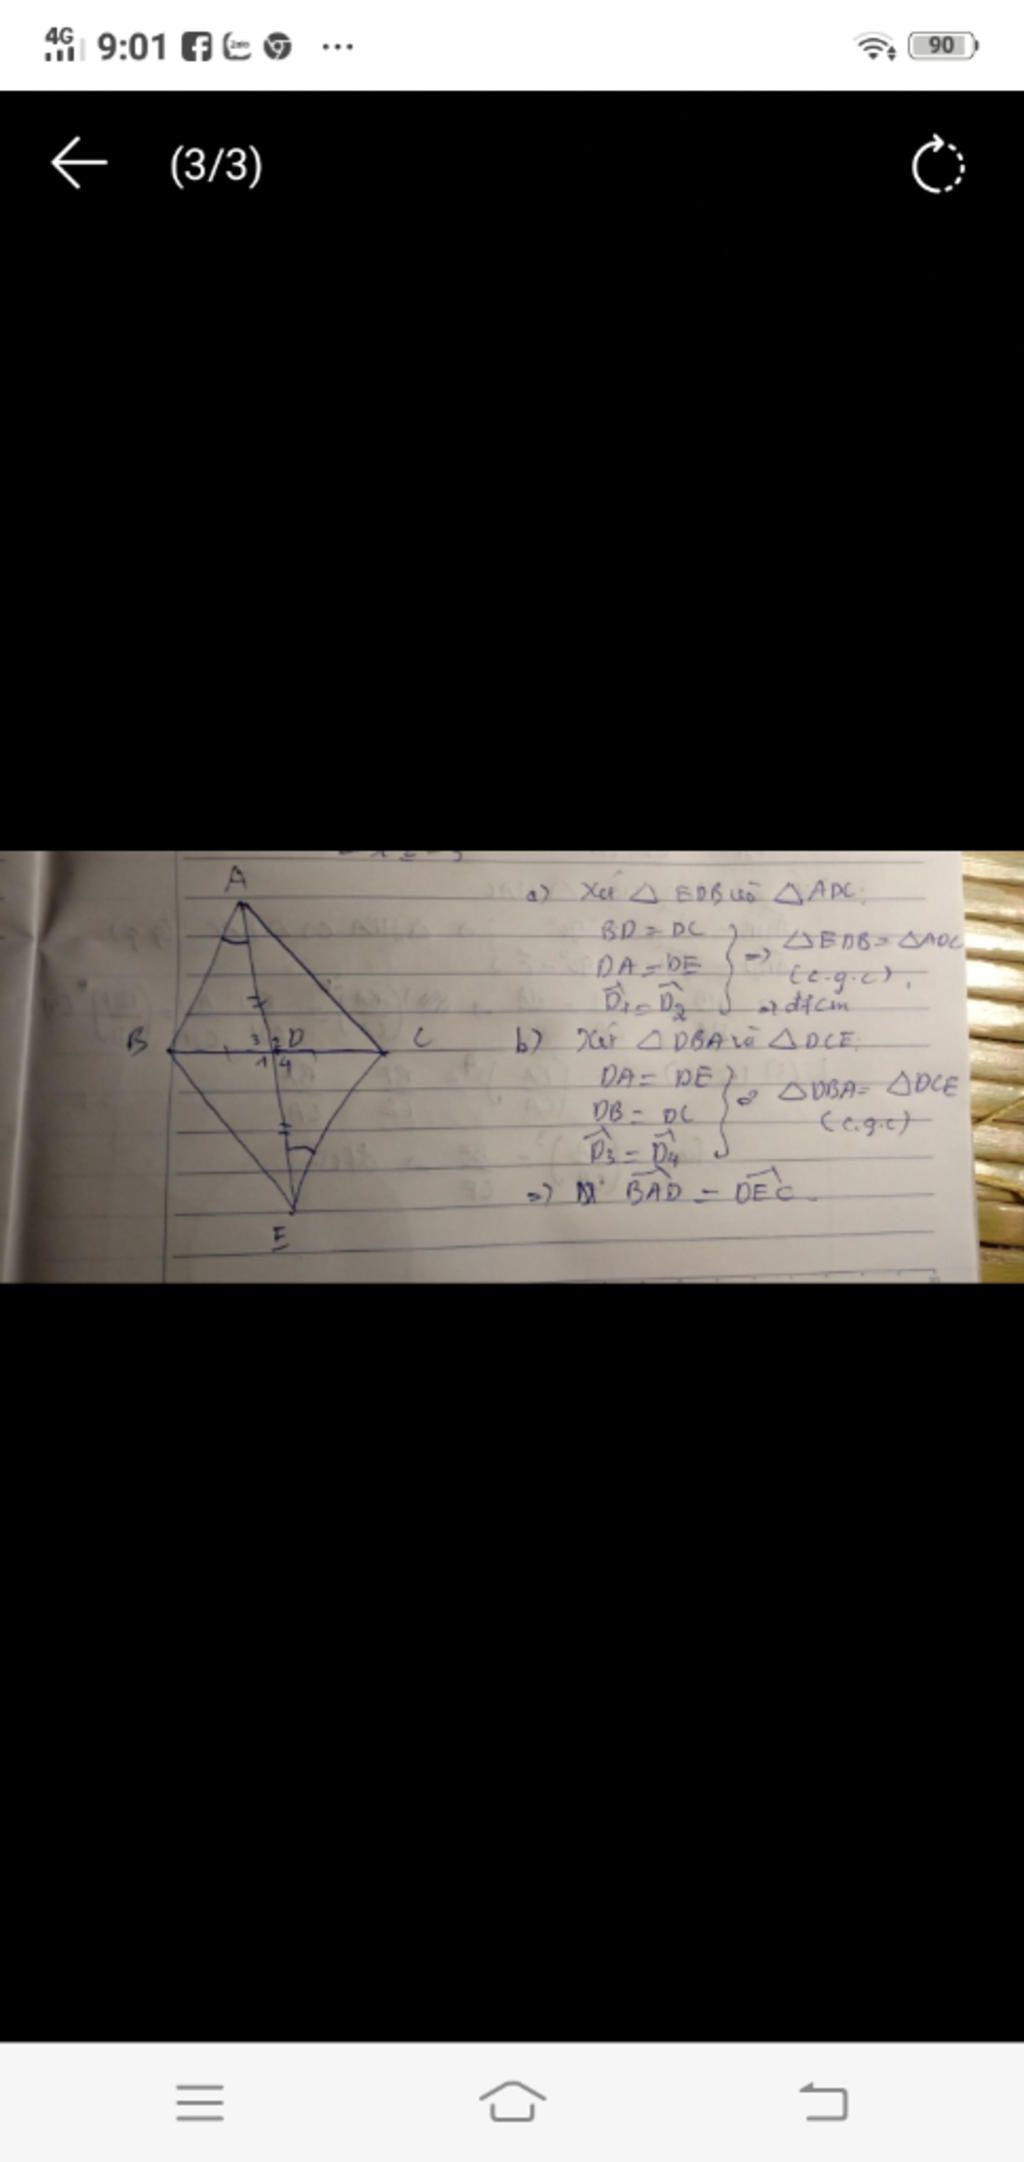 4G 9:01 90
(3/3)
A
B
C
3 2 D
1 4
E
a) Xét △ EDB và △ ADC:
BD = DC
DA = DE
D̂1 = D̂2
=> △EDB = △ADC
(c.g.c).
=> đfcm
b) Xét △ DBA và △ DCE:
DA = DE
DB = DC
D̂3 = D̂4
=> △DBA = △DCE
(c.g.c)
=> BAD = DEC.